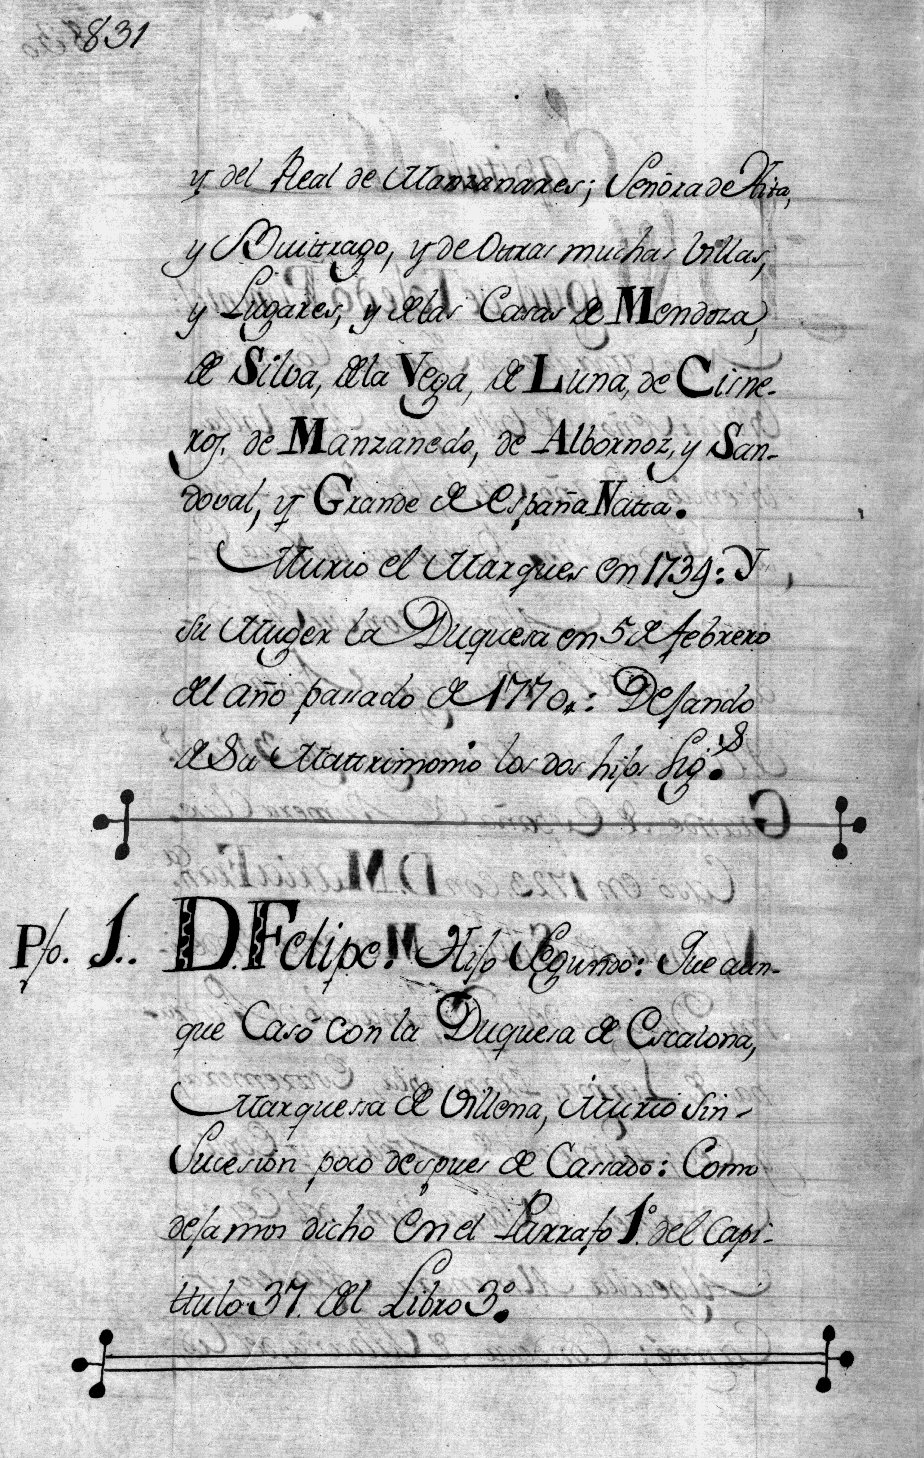 831
y del Real de Manzanares; Señora de Hita,
y Buittrago, y de Ottras muchas Villas,
y Lugares; y de las Casas de Mendoza,
de Silva, de la Vega, de Luna, de Cisne-
ros, de Manzanedo, de Albornoz, y San-
doval, y Grande de España Natta.
Murio el Marques en 1734: Y
su Muger la Duquesa en 5 de febrero
del año passado de 1770,: Dejando
de Su Mattrimonio los dos hijos Sig.s
Pfo. 1.. D. Felipe. Hijo Segundo: Que aun-
que Casó con la Duquesa de Escalona,
Marquessa de Villena, Murio Sin-
Sucesion poco despues de Cassado: Como
dejamos dicho en el Parrafo 1º. del Capi-
ttulo 37. del Libro 3º.